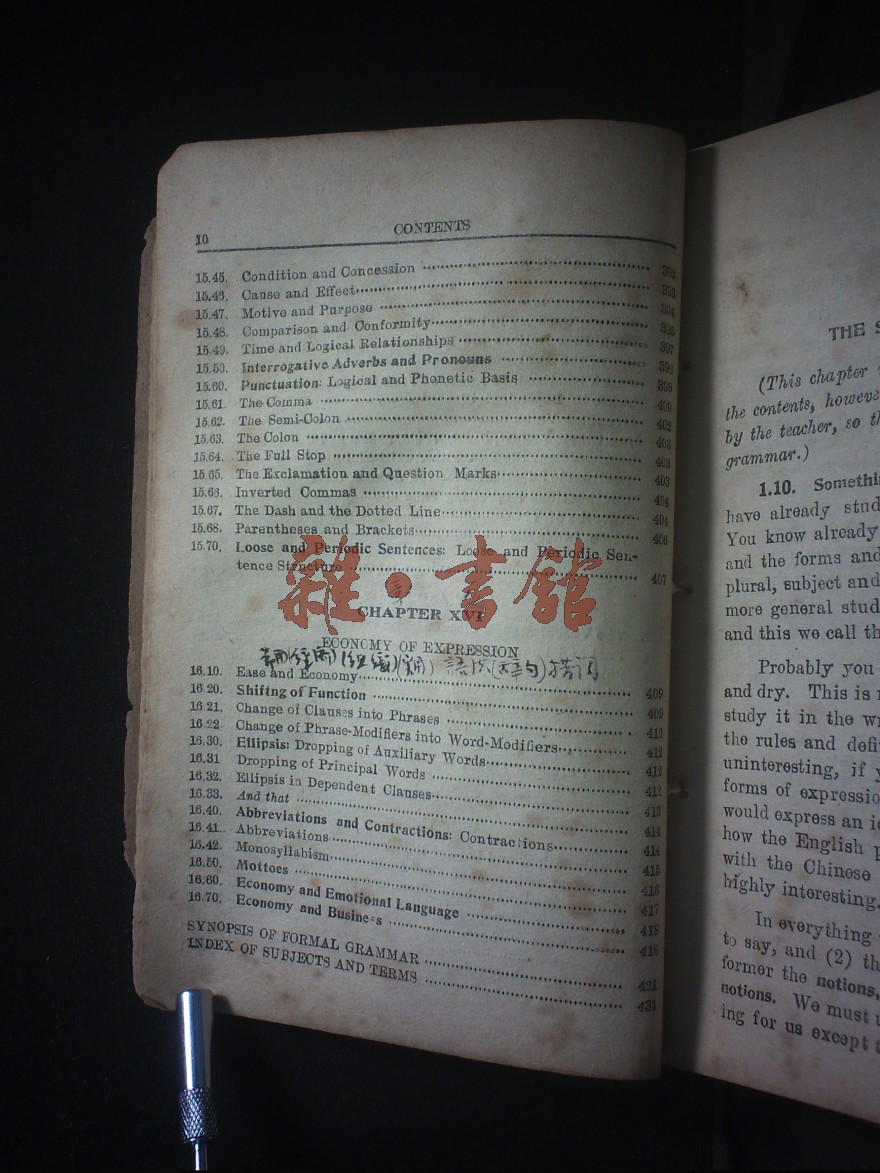 10 CONTENTS
15.45. Condition and Concession 392
15.46. Cause and Effect 393
15.47. Motive and Purpose 394
15.48. Comparison and Conformity 395
15.49. Time and Logical Relationships 397
15.50. Interrogative Adverbs and Pronouns
15.60. Punctuation: Logical and Phonetic Basis 399
15.61. The Comma 400
15.62. The Semi-Colon 402
15.63. The Colon 403
15.64. The Full Stop 403
15.65. The Exclamation and Question Marks 403
15.66. Inverted Commas 404
15.67. The Dash and the Dotted Line 404
15.68. Parentheses and Brackets 406
15.70. Loose and Periodic Sentences: Loose and Periodic Sen-
tence Structure 407
雜·書館
CHAPTER XVI
ECONOMY OF EXPRESSION
16.10. Ease and Economy 409
16.20. Shiftng of Function 409
16.21. Change of Clauses into Phrases 410
16.22 Change of Phrase-Modifiers into Word-Modifiers 412
16.30. Ellipsis: Dropping of Auxiliary Words 412
16.31 Dropping of Principal Words 412
16.32. Ellipsis in Dependent Clauses 413
16.33. And that 414
16.40. Abbreviations and Contractions: Contractions 414
16.41. Abbreviations 415
16.42. Monosyllabism 416
16.50. Mottoes 417
16.60. Economy and Emotional Language 418
16.70. Economy and Business 418
SYNOPSIS OF FORMAL GRAMMAR 421
INDEX OF SUBJECTS AND TERMS 431
THE
(This chapter
the contents,
by the teacher, so
grammar.)
1.10.
have already
You know already
and the forms and
plural, subject and
more general
and this we call
Probably you
and dry. This is
study it in the
the rules and
uninteresting, if
forms of
would express an
how the English
with the Chinese
highly interesting.
In everything
to say, and (2)
former the notions,
notions. We must
ing for us except